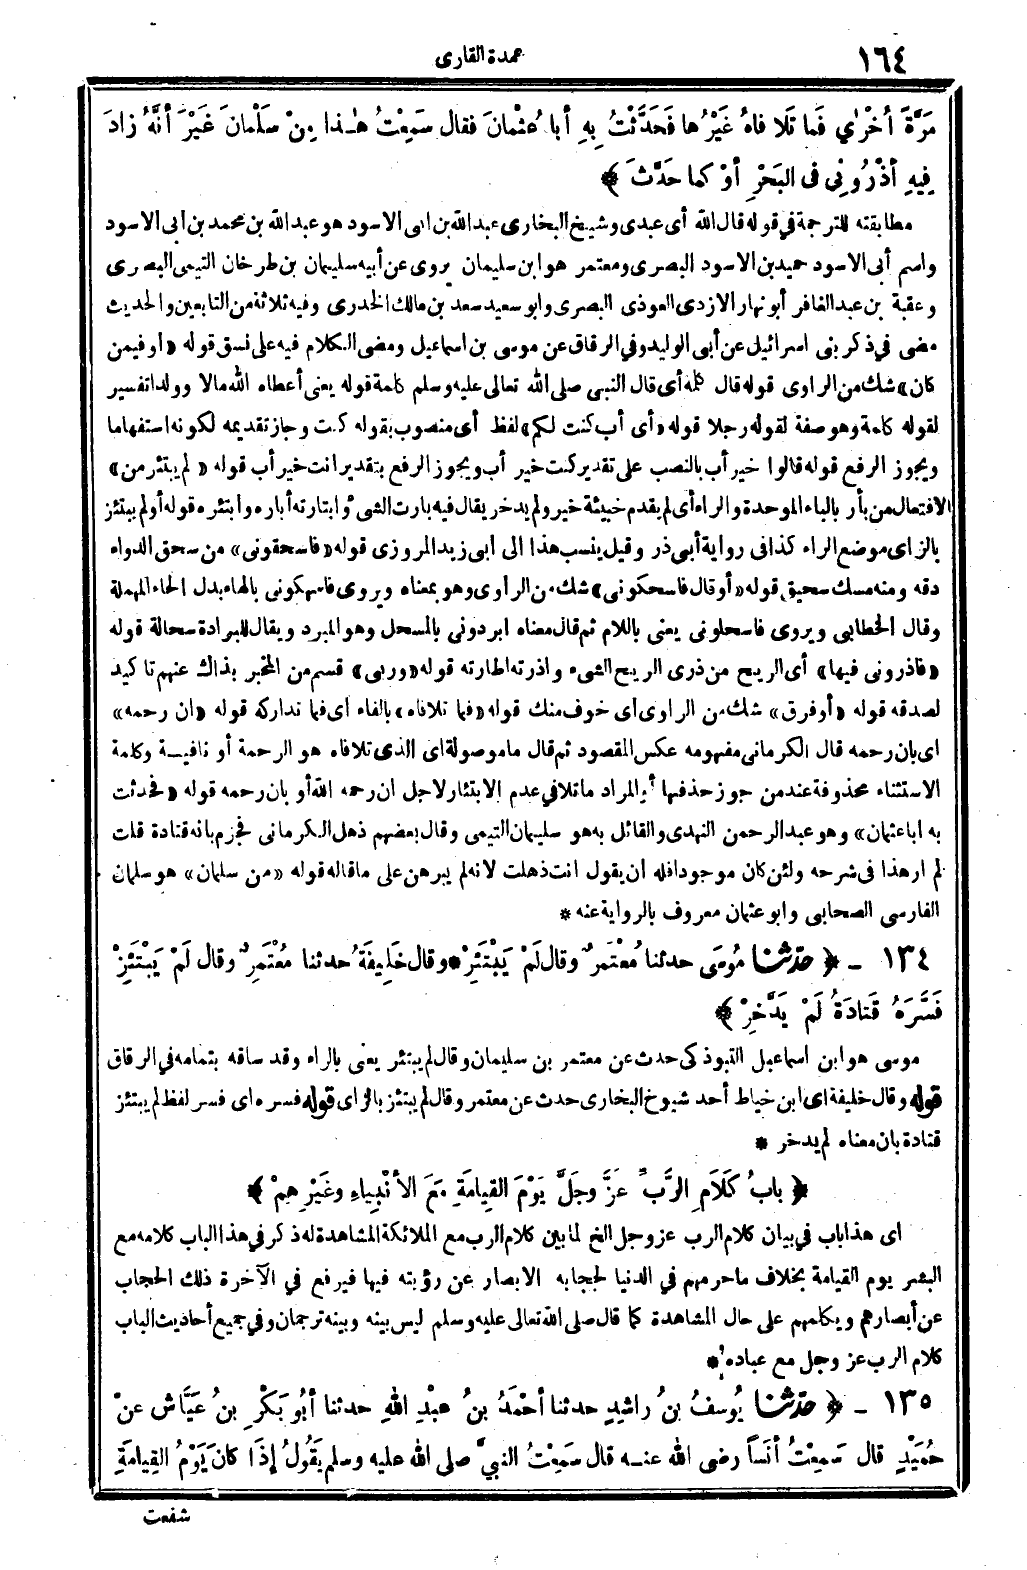 ١٦٤
عمدة القارى
مَرَّةً أُخْرَى فَما تَلافاهُ غَيْرُها فَحَدَّثْتُ بِهِ أبا عُثْمانَ فقال سَمِعْتُ هٰذا مِنْ سَلْمانَ غَيْرَ أنَّهُ زادَ
فِيهِ أذْرُونِي فى البَحْرِ أوْ كما حَدَّثَ ﴾
مطابقته للترجمة في قوله قال الله أى عبدى وشيخ البخارى عبدالله بن ابى الاسود هو عبدالله بن محمد بن ابى الاسود
واسم أبى الاسود حميد بن الاسود البصرى ومعتمر هو ابن سليمان يروى عن أبيه سليمان بن طرخان التيمى البصرى
وعقبة بن عبد الغافر أبو نهار الازدى العوذى البصرى وابو سعيد سعد بن مالك الخدرى وفيه ثلاثة من التابعين والحديث
مضى في ذكر بنى اسرائيل عن أبى الوليد وفي الرقاق عن موسى بن اسماعيل ومضى الكلام فيه على نسق قوله «أو فيمن
كان» شك من الراوى قوله قال كلمة أى قال النبى صلى الله تعالى عليه وسلم كلمة قوله يعنى أعطاه الله مالا وولدا تفسير
لقوله كلمة وهو صفة لقوله رجلا قوله «أى أب كنت لكم» لفظ أى منصوب بقوله كنت وجاز تقديمه لكونه استفهاما
ويجوز الرفع قوله قالوا خير أب بالنصب على تقدير كنت خير أب ويجوز الرفع بتقدير انت خير أب قوله «لم يبتئر من»
الافتعال من بأر بالباء الموحدة والراء أى لم يقدم خبيئة خير ولم يدخر يقال فيه بارت الشى وابتارته أباره وابتئره قوله أو لم يبتئز
بالزاى موضع الراء كذا فى رواية أبى ذر وقيل ينسب هذا الى ابى زيد المروزى قوله «فاسحقونى» من سحق الدواء
دقه ومنه مسك سحيق قوله «أو قال فاسحكونى» شك من الراوى وهو بمعناه ويروى فاسهكونى بالهاء بدل الحاء المهملة
وقال الخطابى ويروى فاسحلونى يعنى باللام ثم قال معناه ابردونى بالمسحل وهو المبرد ويقال للبرادة سحالة قوله
«فاذرونى فيها» أى الريح من ذرى الريح الشىء واذرته اطارته قوله «وربى» قسم من المخبر بذاك عنهم تاكيد
لصدقه قوله «أو فرق» شك من الراوى اى خوف منك قوله «فما تلافاه» بالفاء أى فما تداركه قوله «ان رحمه»
اى بان رحمه قال الكرمانى مفهومه عكس المقصود ثم قال ما موصولة اى الذى تلافاه هو الرحمة أو نافيــة وكلمة
الاستثناء محذوفة عند من جوز حذفها أو المراد ما تلافى عدم الابتئار لاجل ان رحمه الله أو بان رحمه قوله «فحدثت
به ابا عثمان» وهو عبد الرحمن النهدى والقائل به هو سليمان التيمى وقال بعضهم ذهل الكرمانى فجزم بانه قتادة قلت
لم ار هذا فى شرحه ولئن كان موجودا فله ان يقول انت ذهلت لانه لم يبرهن على ما قاله قوله «من سلمان» هو سلمان
الفارسى الصحابى وابو عثمان معروف بالرواية عنه *
١٣٤ - ﴿ حَدَّثَنا مُوسَى حدثنا مُعْتَمِرٌ وقال لَمْ يَبْتَئِرْ * وقال خَلِيفَةُ حدثنا مُعْتَمِرٌ وقال لَمْ يَبْتَئِزْ
فَسَّرَهُ قَتادَةُ لَمْ يَدَّخِرْ ﴾
موسى هو ابن اسماعيل التبوذكى حدث عن معتمر بن سليمان وقال لم يبتئر يعنى بالراء وقد ساقه بتمامه في الرقاق
قوله وقال خليفة اى ابن خياط أحد شيوخ البخارى حدث عن معتمر وقال لم يبتئز بالزاى قوله فسره اى فسر لفظ لم يبتئز
قتادة بان معناه لم يدخر *
﴿ بابُ كَلامِ الرَّبِّ عَزَّ وجَلَّ يَوْمَ القِيامَةِ مَعَ الأنْبِياءِ وغَيْرِهِمْ ﴾
اى هذا باب في بيان كلام الرب عز وجل الخ لما بين كلام الرب مع الملائكة المشاهدة له ذكر في هذا الباب كلامه مع
البشر يوم القيامة بخلاف ما حرمهم في الدنيا لحجابه الابصار عن رؤيته فيها فيرفع في الآخرة ذلك الحجاب
عن أبصارهم ويكلمهم على حال المشاهدة كما قال صلى الله تعالى عليه وسلم ليس بينه وبينه ترجمان وفي جميع أحاديث الباب
كلام الرب عز وجل مع عباده *
١٣٥ - ﴿ حَدَّثَنا يُوسُفُ بنُ راشِدٍ حدثنا أحْمَدُ بنُ عبْدِ اللهِ حدثنا أبُو بَكْرِ بنُ عَيَّاشٍ عنْ
حُمَيْدٍ قال سَمِعْتُ أنَساً رضى الله عنـه قال سَمِعْتُ النبيَّ صلى الله عليه وسلم يَقُولُ إذَا كانَ يَوْمُ القِيامَةِ
شفعت